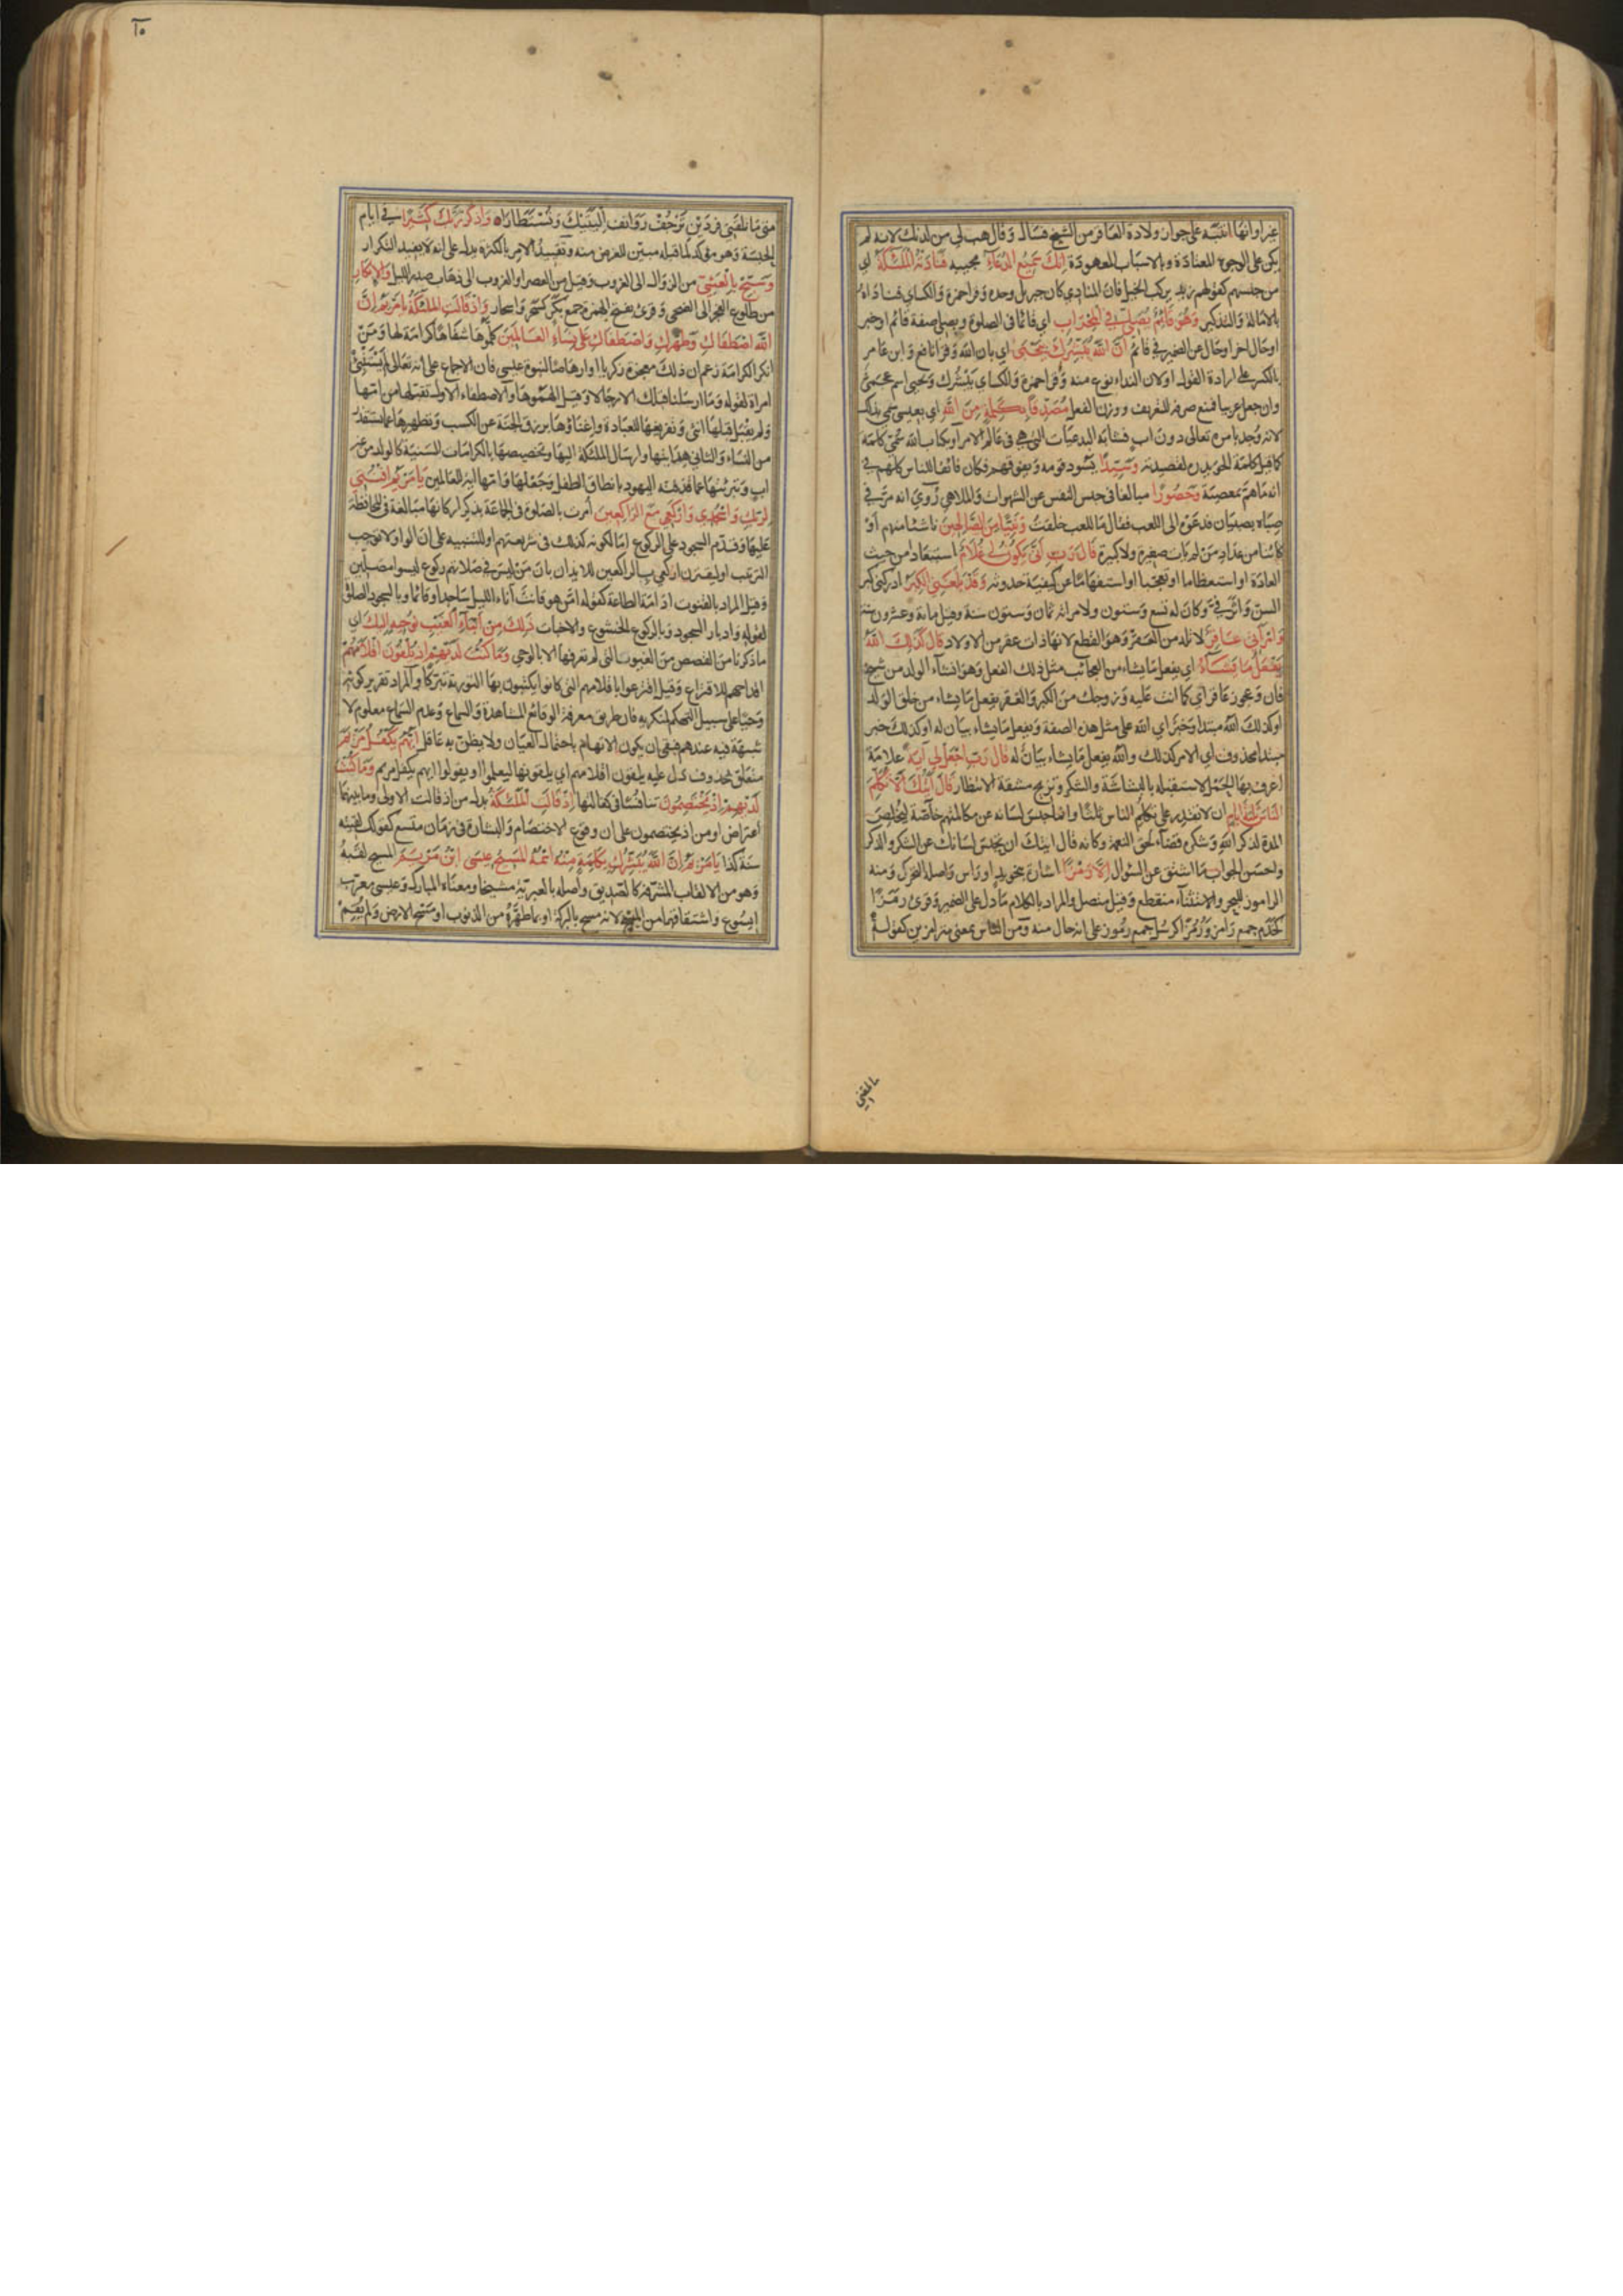 غير اوانها انتبه على جواز ولادة العاقر من الشيخ فسال وقال هب لي من لدنك لانه لم
يكن على الوجوه المعتادة وبالاسباب المعهودة اِنَّكَ سَمِيْعُ الدُّعَاءِ مجيبه فَنَادَتْهُ المَلٰئِكَةُ اي
من جنسهم كقولهم زيد يركب الخيل فان المنادي كان جبريل وحده وقرا حمزة والكساي فناداه
بالامالة والتذكير وَهُوَ قَائِمٌ يُصَلِّي فِي المِحْرَابِ اي قائما في الصلوة ويصلي صفة قائم او خبر
او حال اخر او حال عن الضمير في قائم اَنَّ اللّٰهَ يُبَشِّرُكَ بِيَحْيَىٰ اي بان الله وقرا نافع وابن عامر
بالكسر على ارادة القول او لان النداء نوع منه وقرا حمزة والكساي يَبْشُرُك ويحيى اسم عجمي
وان جعل عربيا فمنع صرفه للتعريف ووزن الفعل مُصَدِّقًا بِكَلِمَةٍ مِنَ اللّٰهِ اي بعيسى سمي بذلك
لانه وُجد بامره تعالى دون اب فشابه البدعيات التي هي في عالم الامر او بكتاب الله سمي كلمة
كما قيل كلمة الحويدرة لقصيدته وَسَيِّدًا يسود قومه ويفوقهم وكان فائقا للناس كلهم في
انه ما هم بمعصية وَحَصُورًا مبالغا في حبس النفس عن الشهوات والملاهي رُوي انه مر في
صباه بصبيان فدعوه الى اللعب فقال ما للعب خلقت وَنَبِيًّا مِنَ الصَّالِحِينَ ناشئا منهم او
كائنا من عداد من لم يات صغيرة ولا كبيرة قَالَ رَبِّ اَنّٰى يَكُوْنُ لِي غُلَامٌ استبعادا من حيث
العادة او استعظاما او تعجبا او استفهاما عن كيفية حدوثه وَقَدْ بَلَغَنِيَ الكِبَرُ ادركني كبر
السن واثر في وكان له تسع وتسعون ولامراته ثمان وتسعون سنة وقيل مائة وعشرون سنة
وَامْرَاَتِي عَاقِرٌ لا تلد من العَقر وهو القطع لانها ذات عقر من الاولاد قَالَ كَذٰلِكَ اللّٰهُ
يَفْعَلُ مَا يَشَاءُ اي يفعل ما يشاء من العجائب مثل ذلك الفعل وهو انشاء الولد من شيخ
فان وعجوز عاقر اي كما انت عليه وزوجك من الكبر والعقر يفعل ما يشاء من خلق الولد
او كذلك الله مبتدا وخبر اي الله على مثل هذه الصفة ويفعل ما يشاء بيان له او كذلك خبر
مبتدا محذوف اي الامر كذلك والله يفعل ما يشاء بيان له قَالَ رَبِّ اجْعَلْ لِي اٰيَةً علامة
اعرف بها الحَبَل لاستقبله بالبشاشة والشكر وتزيح مشقة الانتظار قَالَ اٰيَتُكَ اَلَّا تُكَلِّمَ
النَّاسَ ثَلٰثَةَ اَيَّامٍ ان لا تقدر على تكليم الناس ثلثا وانما حبس لسانه عن مكالمتهم خاصة ليخلص
المدة لذكر الله وشكره قضاء لحق النعمة وكانه قال ايتك ان يحتبس لسانك عن الشكر والذكر
واحسن الجواب ما اشتق عن السؤال اِلَّا رَمْزًا اشارة بنحو يد او راس واصله التحرك ومنه
الراموز للبحر والاستثناء منقطع وقيل متصل والمراد بالكلام ما دل على الضمير وقرئ رَمَزًا
كخَدَم جمع رامز ورُمُزًا كرُسُل جمع رموز على انه حال منه ومن الناس بمعنى مترامزين كقوله
متى ما تلقني فردين ترجف روانف اليتيك وتستطارا وَاذْكُرْ رَبَّكَ كَثِيْرًا في ايام
الحبسة وهو مؤكد لما قبله مبين للغرض منه وتقييد الامر بالكثرة يدل على انه لا يفيد التكرار
وَسَبِّحْ بِالْعَشِيِّ من الزوال الى الغروب وقيل من العصر او الغروب الى ذهاب صدر الليل وَالاِبْكَارِ
من طلوع الفجر الى الضحى وقرئ بفتح الهمزة جمع بكر كسحر واسحار وَاِذْ قَالَتِ المَلٰئِكَةُ يَا مَرْيَمُ اِنَّ
اللّٰهَ اصْطَفَاكِ وَطَهَّرَكِ وَاصْطَفَاكِ عَلىٰ نِسَاءِ العَالَمِيْنَ كلموها شفاها كرامة لها ومن
انكر الكرامة زعم ان ذلك معجزة زكريا او ارهاصا لنبوة عيسى فان الاجماع على انه تعالى لم يستنبئ
امراة لقوله وما ارسلنا قبلك الا رجالا وقيل الهموها والاصطفاء الاول تقبلها من امها
ولم يقبل قبلها انثى وتفريغها للعبادة واغناؤها برزق الجنة عن الكسب وتطهيرها عما يستقذر
من النساء والثاني هدايتها وارسال الملئكة اليها وتخصيصها بالكرامات السنية كالولد من غير
اب وتبرئتها عما قذفته اليهود بانطاق الطفل وجعلها وابنها اية للعالمين يَا مَرْيَمُ اقْنُتِي
لِرَبِّكِ وَاسْجُدِي وَارْكَعِي مَعَ الرَّاكِعِيْنَ امرت بالصلوة في الجماعة بذكر اركانها مبالغة في المحافظة
عليها وقدم السجود على الركوع اما لكونه كذلك في شريعتهم او للتنبيه على ان الواو لا توجب
الترتيب او ليقترن اركعي بالراكعين للايذان بان من ليس في صلاتهم ركوع ليسوا مصلين
وقيل المراد بالقنوت ادامة الطاعة كقوله امن هو قانت آناء الليل ساجدا وقائما وبالسجود الصلوة
لقوله وادبار السجود وبالركوع الخشوع والاخبات ذٰلِكَ مِنْ اَنْبَاءِ الغَيْبِ نُوْحِيْهِ اِلَيْكَ اي
ما ذكرنا من القصص من الغيوب التي لم تعرفها الا بالوحي وَمَا كُنْتَ لَدَيْهِمْ اِذْ يُلْقُوْنَ اَقْلَامَهُمْ
اقداحهم للاقتراع وقيل اقترعوا باقلامهم التي كانوا يكتبون بها التورية تبركا والمراد تقرير كونه
وحيا على سبيل التهكم لمنكريه فان طريق معرفة الوقائع المشاهدة والسماع وعدم السماع معلوم لا
شبهة فيه عندهم فبقي ان يكون الاتهام باحتمال العيان ولا يظن به عاقل اَيُّهُمْ يَكْفُلُ مَرْيَمَ
متعلق بمحذوف دل عليه يلقون اقلامهم اي يلقونها ليعلموا او يقولوا ايهم يكفل مريم وَمَا كُنْتَ
لَدَيْهِمْ اِذْ يَخْتَصِمُوْنَ تنافسا في كفالتها اِذْ قَالَتِ المَلٰئِكَةُ بدل من اذ قالت الاولى وما بينهما
اعتراض او من اذ يختصمون على ان وقوع الاختصام والبشارة في زمان متسع كقولك لقيته
سنة كذا يَا مَرْيَمُ اِنَّ اللّٰهَ يُبَشِّرُكِ بِكَلِمَةٍ مِنْهُ اسْمُهُ المَسِيْحُ عِيْسَى ابْنُ مَرْيَمَ المسيح لقبه
وهو من الالقاب المشرفة كالصديق واصله بالعبرية مشيخا ومعناه المبارك وعيسى معرب
ايشوع واشتقاقهما من المسح لانه مسح بالبركة او بما طهره من الذنوب او مسح الارض ولم يقم